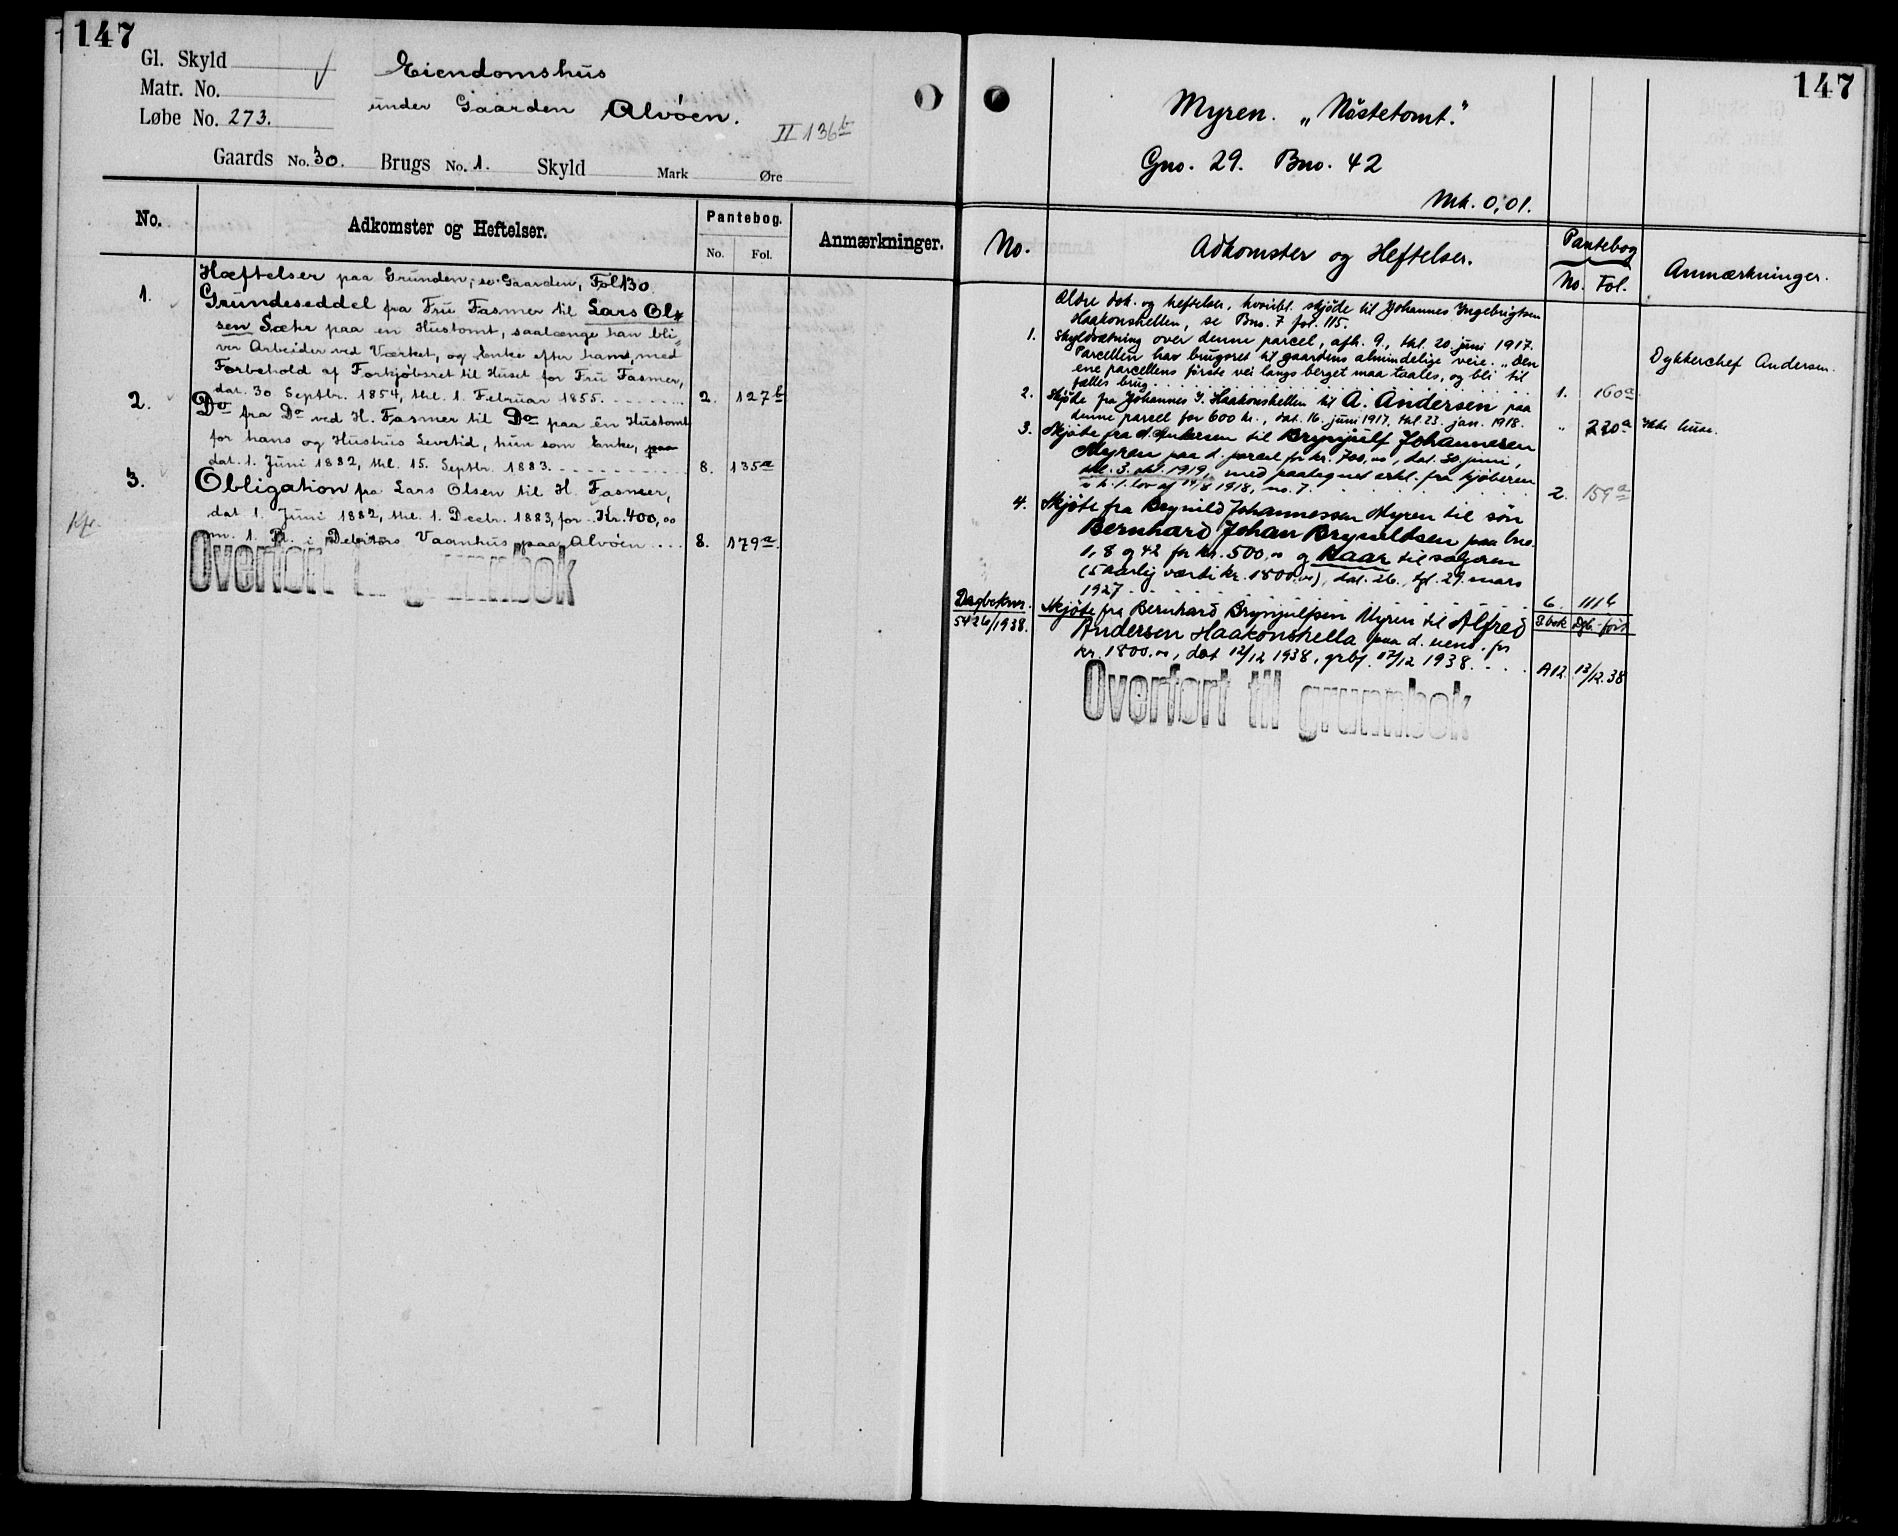 147
Gl. Skyld
Matr. No.
Løbe No. 273.
Eiendomshus
under Gaarden Alvøen.
II 136b
Gaards No. 30. Brugs No. 1. Skyld Mark Øre
No. Adkomster og Heftelser. Pantebog. Anmærkninger.
No. Fol.
Hæftelser paa Grunden, se Gaarden, Fol 130.
1. Grundeseddel fra Fru Fasmer til Lars Ol=
sen Sæter paa en Hustomt, saalænge han bli=
ver Arbeider ved Værket, og Enke efter ham, med
Forbehold af Forkjøbsret til Huset for Fru Fasmer,
dat. 30 Septbr. 1854, thl. 1. Februar 1855. 2. 127b
2. Do fra Do ved H. Fasmer til Do paa en Hustomt
for hans og Hustrus Levetid, hun som Enke, paa
dat. 1. Juni 1882, thl. 15. Septbr. 1883. 8. 135a
3. Obligation fra Lars Olsen til H. Fasmer,
dat 1. Juni 1882, thl. 1. Decbr. 1883, for Kr. 400,00
m. 1. Pr. i Debitors Vaanhus paa Alvøen 8. 179a.
Overført til grunnbok
147
Myren. „Nøstetomt."
Gno. 29. Bno. 42
Mk. 0,01.
No. Adkomster og Heftelser. Pantebog Anmærkninger.
No. Fol.
Ældre dok. og heftelser, hvoriblt. skjøde til Johannes Yngebrigtsen
Haakonshellen, se Bno. 7 fol. 115.
1. Skyldsætning over denne parcel, afh. 9., thl. 20. juni 1917.
Parcellen har brugsret til gaardens almindelige veie. „Den
ene parcellens første vei langs berget maa taales, og bli til
fælles brug 1. 160a
Dykkerchef Andersen.
2. Skjøde fra Johannes Y. Haakonshellen til A. Andersen paa
denne parcel for 600 kr., dat. 16. juni 1917, thl. 23. jan. 1918. " 230a Ikke huse.
3. Skjøte fra A. Andersen til Brynjulf Johannesen
Myren paa d. parcel for kr. 700,00, dat. 30. juni,
thl. 3. 1919, med paategnet erkl. fra kjøberen
lov af 14/8 1918, no. 7. 2. 159a
4. Skjøte fra Brynild Johannessen Myren til søn
Bernhard Johan Bryneldsen paa bno.
1, 8 og 42 for kr. 500.00 og Kaar til sælgeren
(5 aarlig værdi kr. 1800.00), dat. 26., tgl. 29. mars
1927 6. 111b
Dagboknr. 5426/1938. Skjøte fra Bernhard Brynjulfsen Myren til Alfred P.bok Dgb. ført
Andersen Haakonshella paa d. eiend. for
kr. 1800.00, dat 12/12 1938, grbf. 17/12 1938. A12. 13/12.38
Overført til grunnbok